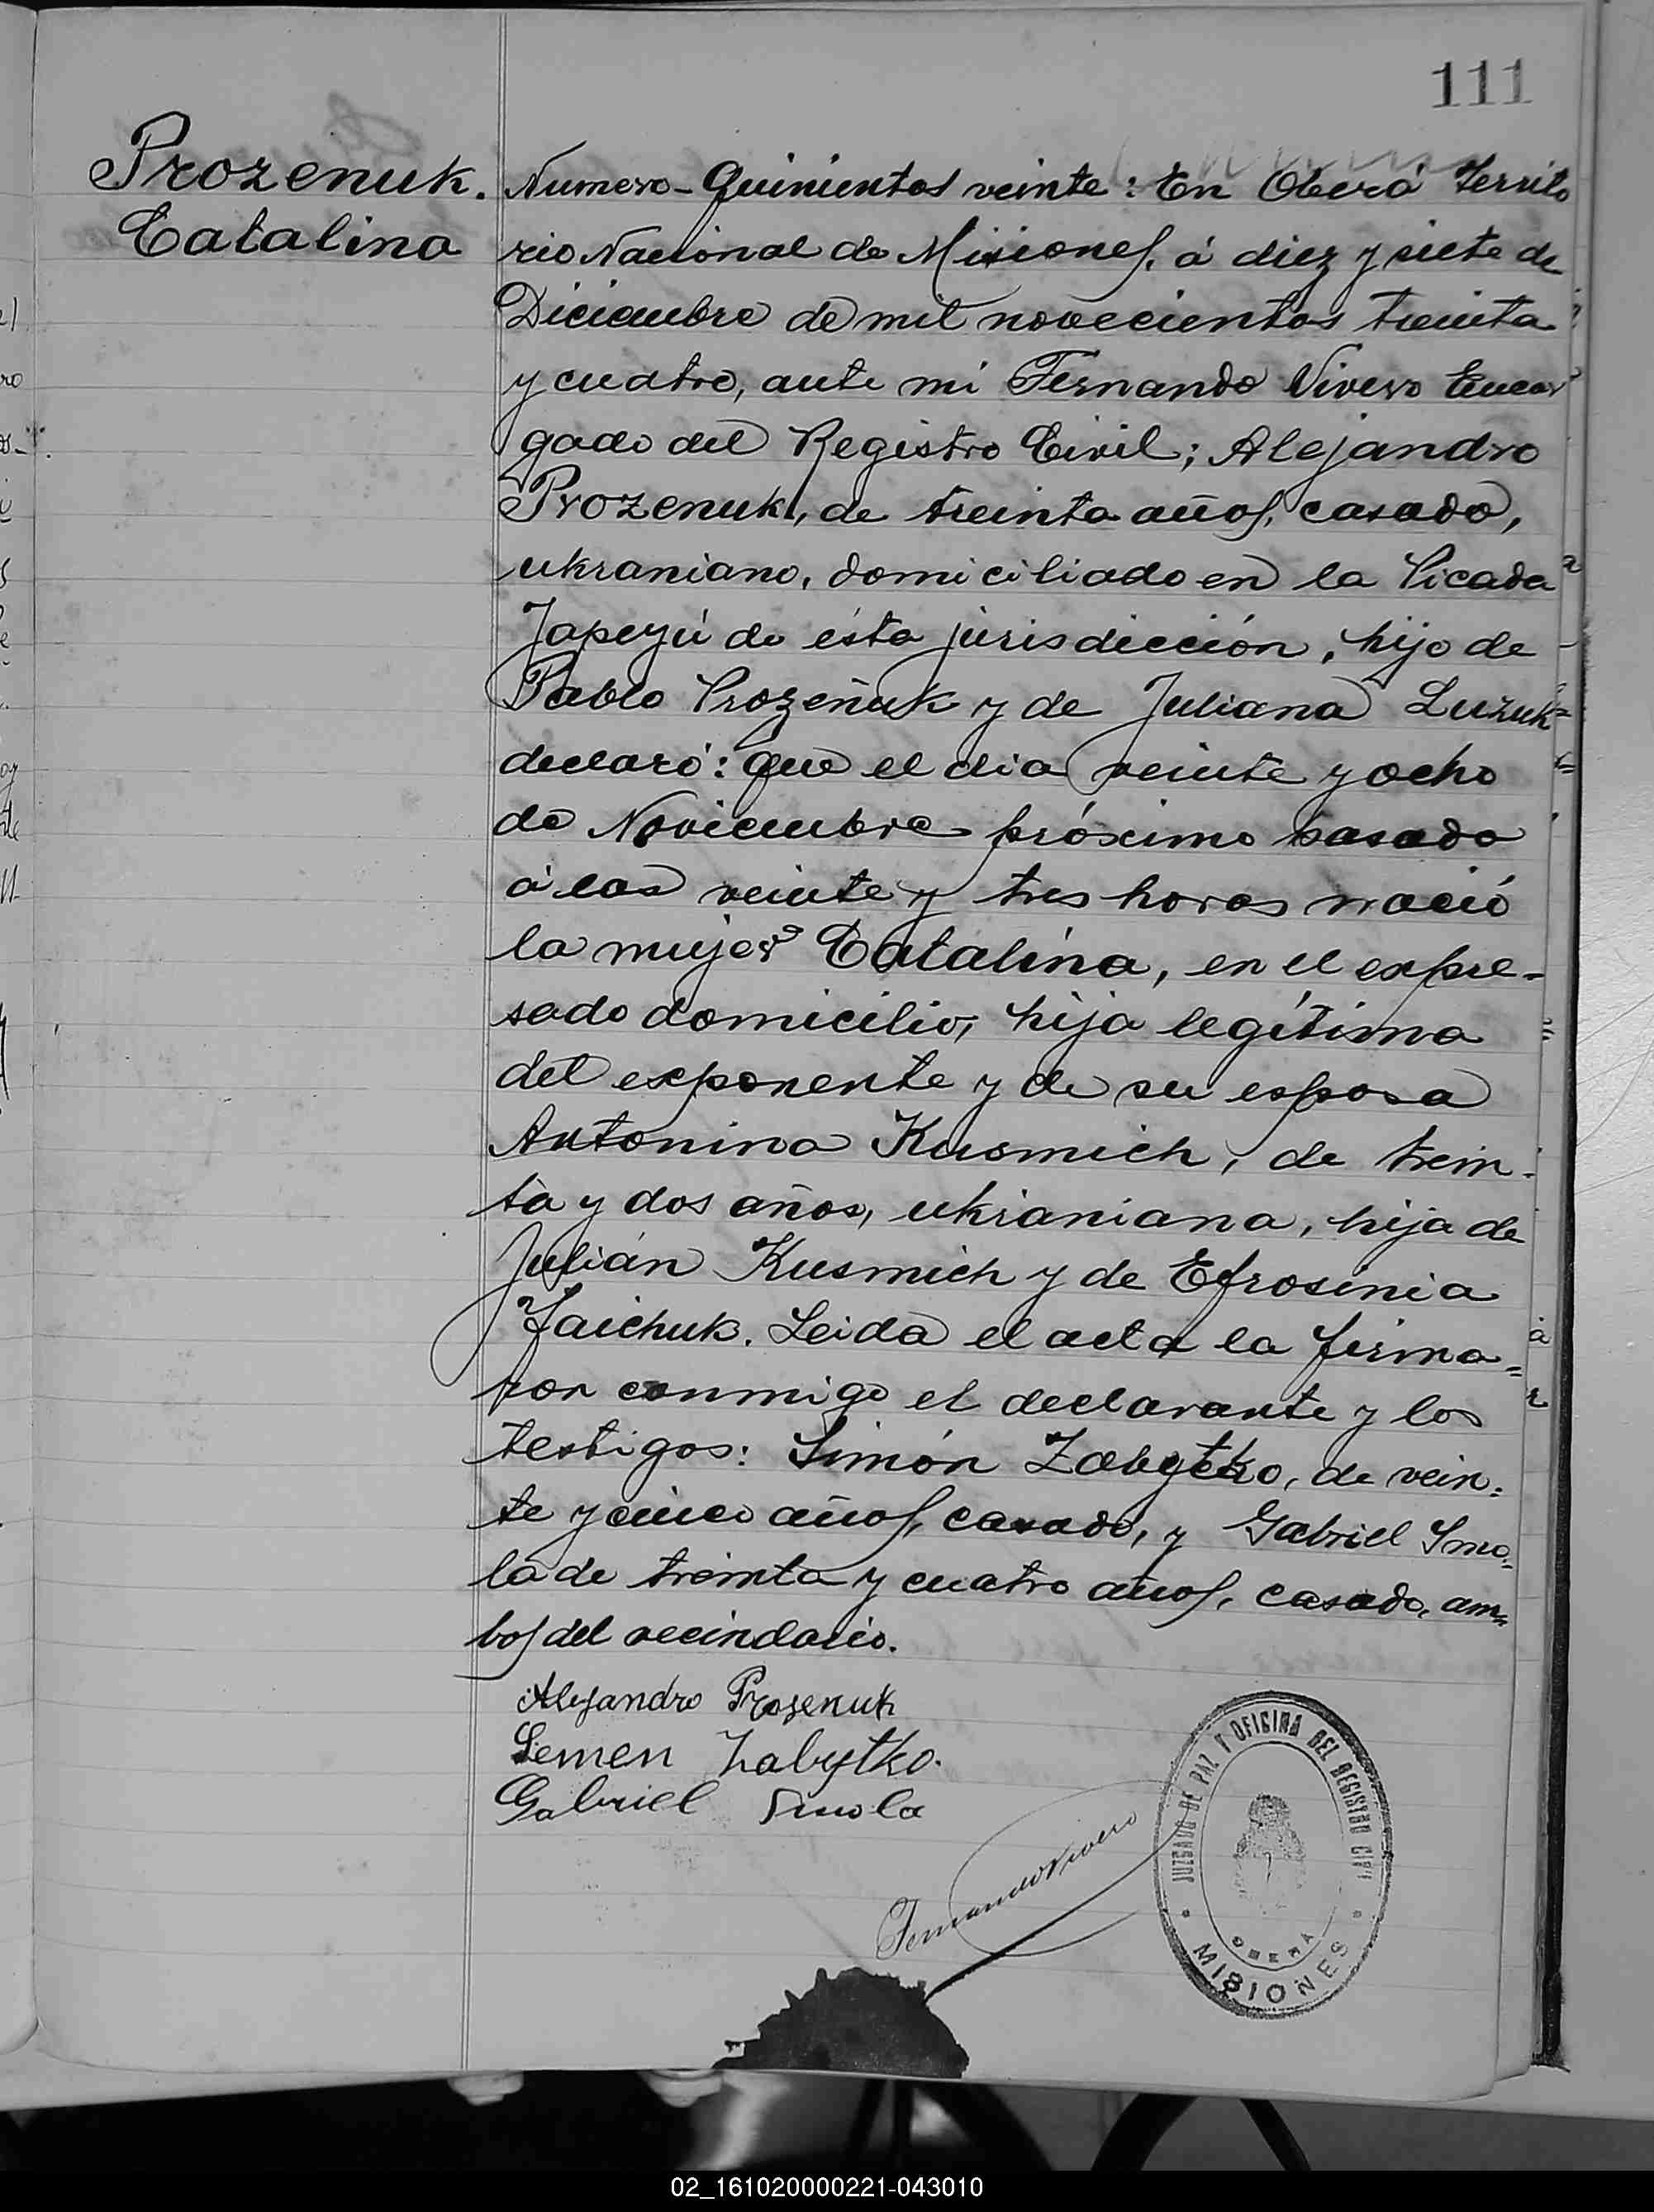 111
Prozenuk.
Catalina
Numero - Quinientos veinte: En Oberá Territo
rio Nacional de Misiones, á diez y siete de
Diciembre de mil novecientos treinta
y cuatro, ante mi Fernando Vivero Encar
gado del Registro Civil; Alejandro
Prozenuk, de treinta años, casado,
ukraniano, domiciliado en la Picada
Japeyú de ésta jurisdicción, hijo de
Pablo Prozeñuk y de Juliana Luzuk=
declaró: Que el dia veinte y ocho
de Noviembre próximo pasado
á las veinte y tres horas nació
la mujer Catalina, en el expre-
sado domicilio, hija legítima
del exponente y de su esposa
Antonina Kusmich, de trein-
ta y dos años, ukraniana, hija de
Julián Kusmich y de Efrosinia
Jaichuk. Leida el acta la firma=
ron conmigo el declarante y los
testigos: Simón Zabytko, de vein-
te y cinco años, casado, y Gabriel Smo-
la de treinta y cuatro años, casado, am=
bos del vecindario.
Alejandro Prozenuk
Semen Zabytko.
Gabriel Smola
Fernando Vivero
JUZGADO DE PAZ Y OFICINA DEL REGISTRO CIVIL
OBERÁ
MISIONES
02_161020000221-043010